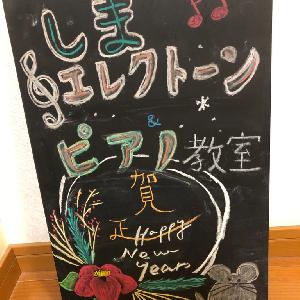 しま
エレクトーン
&
ピアノ教室
賀
正 Happy
New
Years